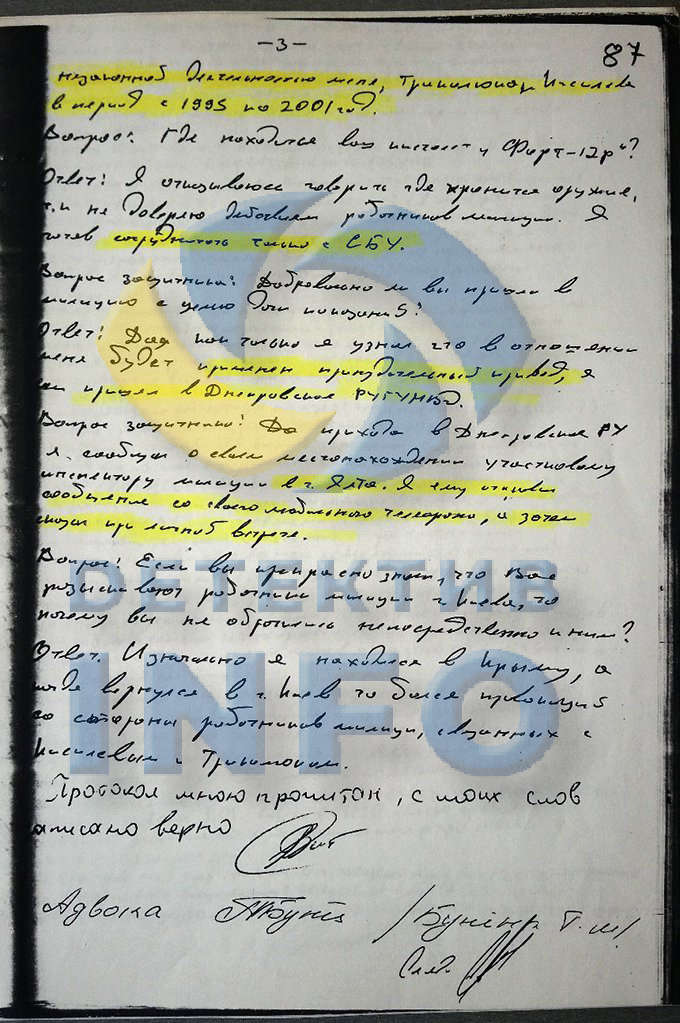 -3-
87
незаконной деятельностью меня, Тримолюка, Киселева
в период с 1995 по 2001 год.
Вопрос: Где находится ваш пистолет „Форт-12р"?
Ответ: Я отказываюсь говорить где хранится оружие,
т.к. не доверяю действиям работников милиции. Я
готов сотрудничать только с СБУ.
Вопрос защитника: Добровольно ли вы пришли в
милицию с целью дачи показаний?
Ответ: Да, как только я узнал что в отношении
меня будет применен принудительный привод, я
пришел в Днепровское РУГУМВД.
Вопрос защитника: До прихода в Днепровское РУ
я сообщал о своем местонахождении участковому
инспектору милиции в г. Ялта. Я ему
сообщение со своего мобильного телефона, а затем
при личной встрече.
Вопрос: Если вы прекрасно знали, что Вас
разыскивают работники милиции г. Киева, то
почему вы не обратились непосредственно к ним?
Ответ. Изначально я находился в Крыму, а
когда вернулся в г. Киев то боялся провокаций
со стороны работников милиции, связанных с
Киселевым и
Протокол мною прочитан, с моих слов
записано верно
Адвока /Бунін Т.М/
Сл.
DETEKTИВ
INFO